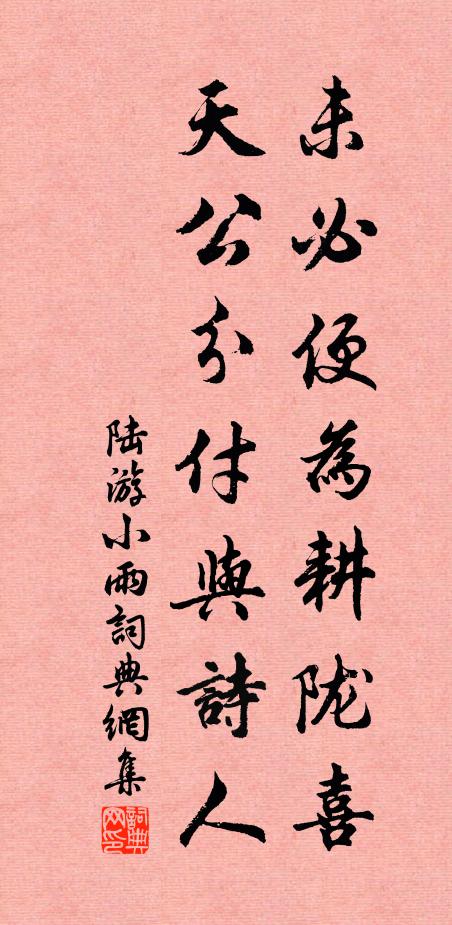 未必便為耕陇喜
天公分付與詩人
陆游小雨詞典網集
詞典网印